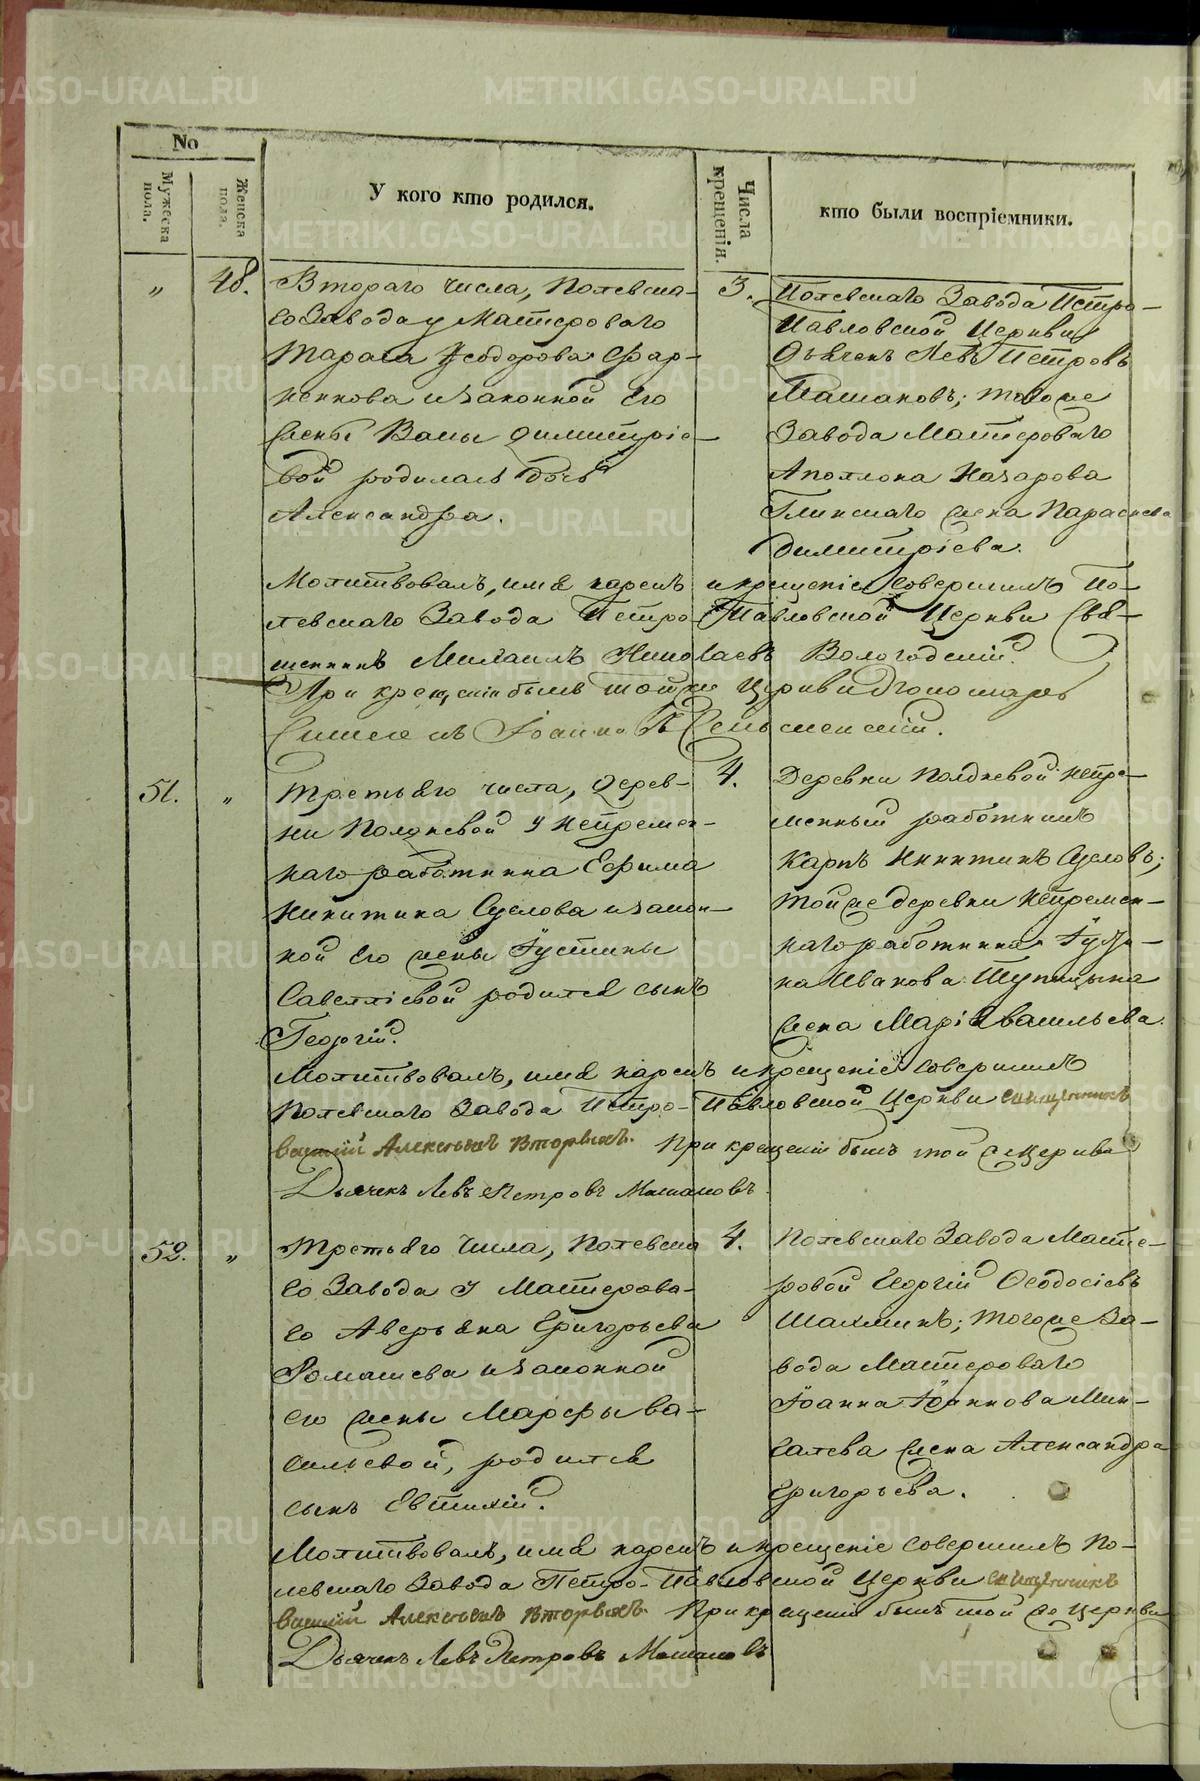 No
Мужеска пола.
Женска пола.
У кого кто родился.
Числа крещенія.
кто были воспріемники.
„ 48. Втораго числа, Полевска-
го Завода у Мастероваго
Тараса Ѳеодорова
и законной его
жены Димитріе-
вой родилась дочь
Александра.
3. Полевскаго Завода Петро-
Павловской Церкви
Дьячекъ Левъ Петровъ
Машановъ; тогоже
Завода Мастероваго
Аполлона Назарова
Глинскаго жена Параскева
Димитріева.
Молитвовалъ, имя нарекъ и крещеніе совершилъ По-
левскаго Завода Петро-Павловской Церкви Свя-
щенникъ Михаилъ Николаевъ Вологодскій.
При крещеніи былъ тойже Церкви Пономарь
Іоанновъ
51. „ Третьяго числа, Дерев-
ни Полдневой у Непремен-
наго работника Ефима
Никитина Суслова и закон-
ной его жены Іустины
Савелліевой родился сынъ
Георгій.
4. Деревни Полдневой Непре-
менный работникъ
Карпъ Никитинъ Сусловъ;
тойже деревни Непремен-
наго работника
Иванова Тупицына
жена Марія Васильева.
Молитвовалъ, имя нарекъ и крещеніе совершилъ
Полевскаго Завода Петро-Павловской Церкви священникъ
Василій Алексѣевъ Вторыхъ. При крещеніи былъ той же Церкви
Дьячекъ Левъ Петровъ Машановъ.
52. „ Третьяго числа, Полевска
го Завода у Мастерова-
го Аверьяна Григорьева
Ромашева и законной
его жены Марфы Ва-
сильевой, родился
сынъ Евтихій.
4. Полевскаго Завода Масте-
ровой Георгій Ѳеодосіевъ
Шахминъ; тогоже За-
вода Мастероваго
Іоанна Іоаннова Мин-
галева жена Александра
Григорьева.
Молитвовалъ, имя нарекъ и крещеніе совершилъ По-
левскаго Завода Петро-Павловской Церкви священникъ
Василій Алексѣевъ Вторыхъ. При крещеніи былъ той же Церкви
Дьячекъ Левъ Петровъ Машановъ
METRIKI.GASO-URAL.RU